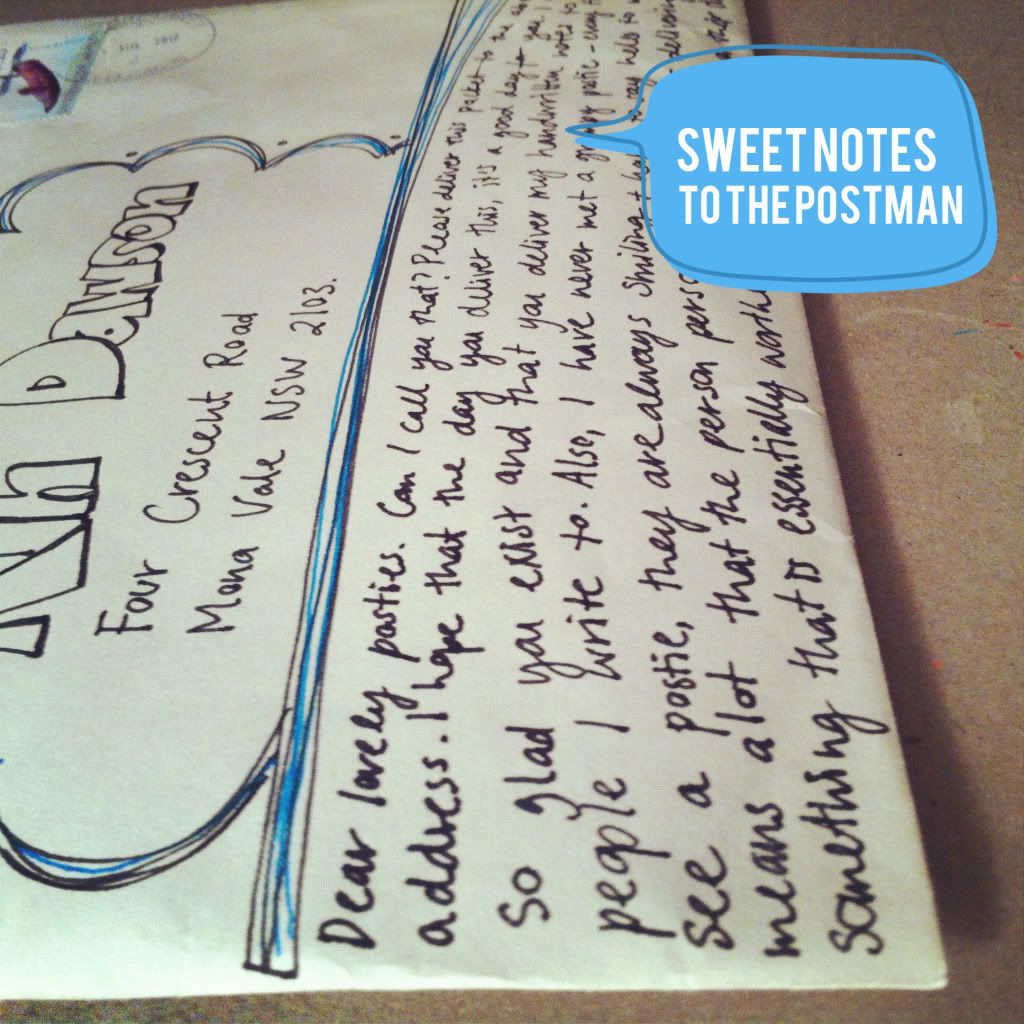 Dawson
Four Crescent Road
Mona Vale NSW 2103.
Dear lovely posties. Can I call you that? Please deliver this packet to the
address. I hope that the day you deliver this, it's a good day to you. I
So glad you exist and that you deliver my handwritten notes
people I write to. Also, I have never met a grumpy postie - every
see a postie, they are always smiling & that may help to
means a lot that the person delivering
something that is essentially
SWEET NOTES
TO THE POSTMAN